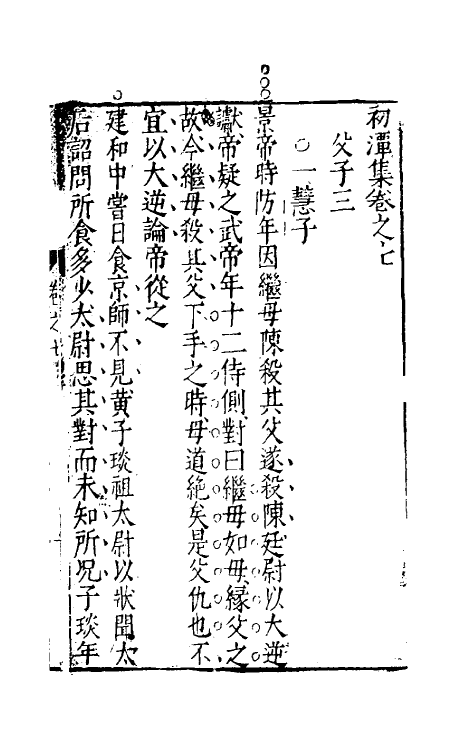 初潭集卷之七
父子三
○一慧子
景帝時防年因繼母陳殺其父遂殺陳廷尉以大逆
讞帝疑之武帝年十二侍側對曰繼母如母緣父之
故今繼母殺其父下手之時母道絕矣是父仇也不
宜以大逆論帝從之
建和中嘗日食京師不見黃子琰祖太尉以狀聞太
后詔問所食多少太尉思其對而未知所况子琰年